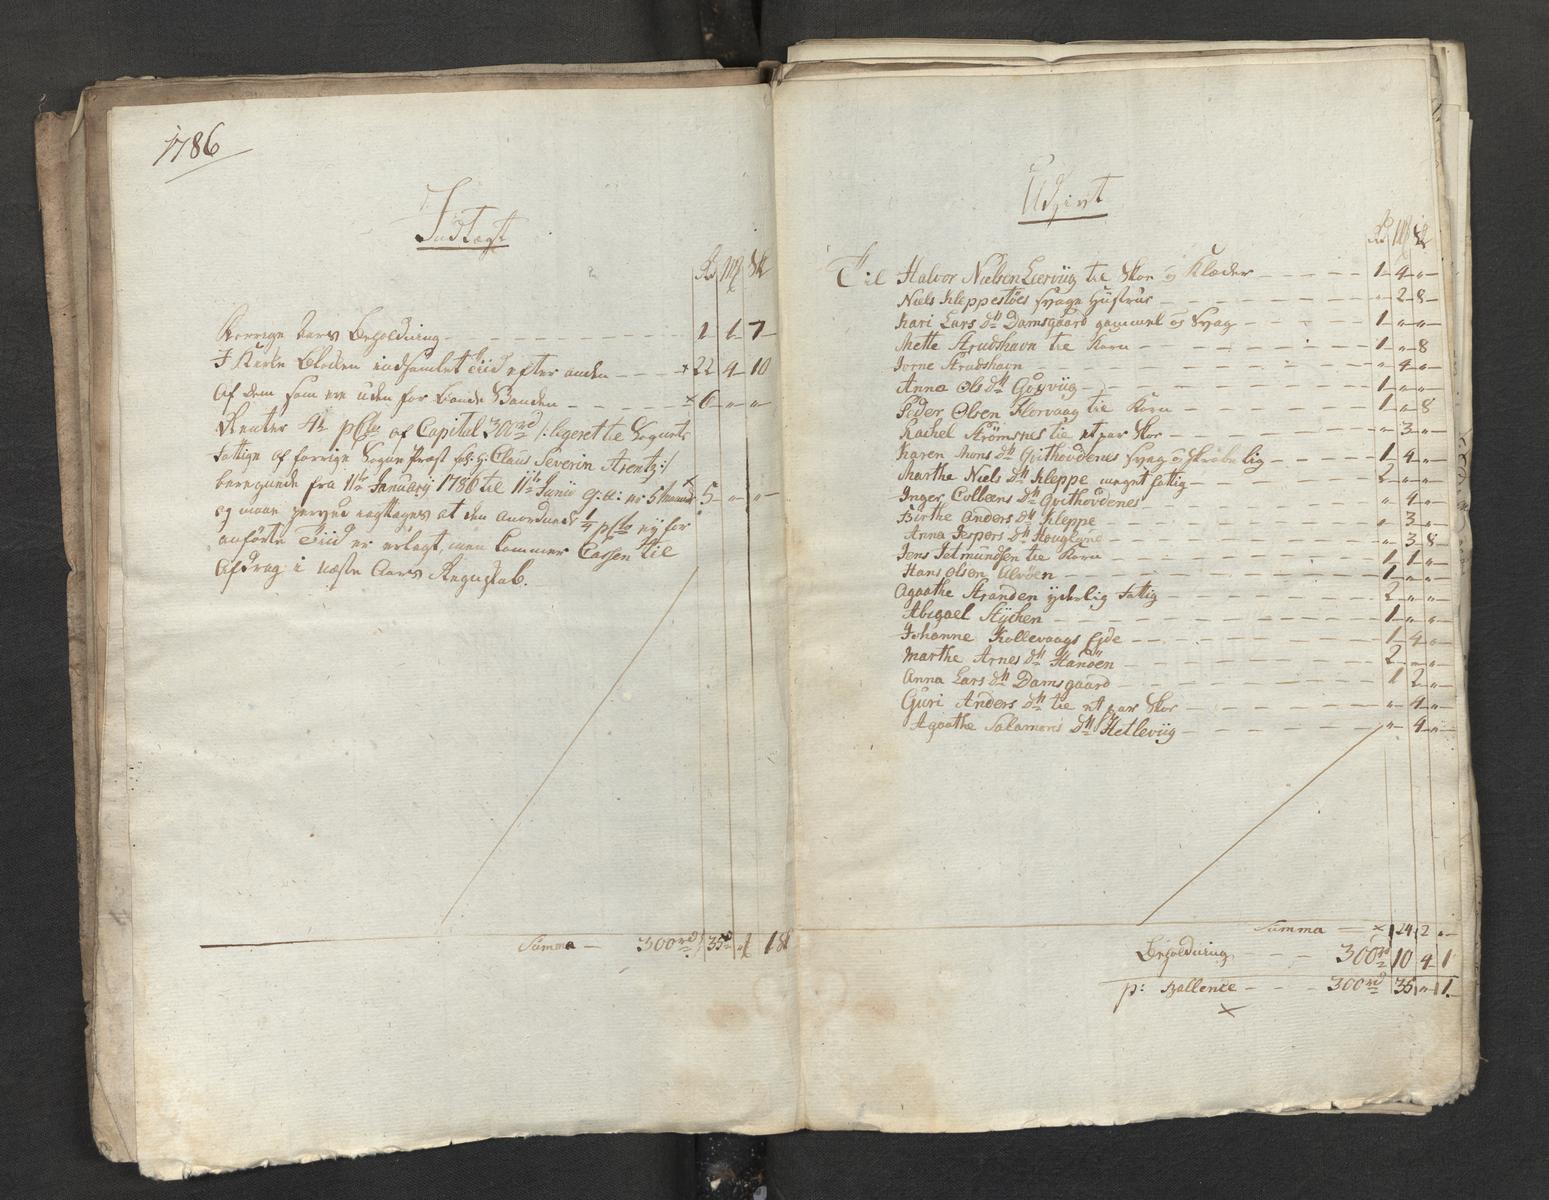 1786
Indtægt
Rd Mk Sk
Forrige Aars Beholdning — 1 1 7
I Kirke Blokken indsamlet Tiid efter anden — × 22 4 10
Af dem som ere uden for Bonde Standen — × 6 „ „
Renter 4 p Cto af Capital 300 rd /: legeret til Sognets
fattige af forrige Sogne Præst Claus Severin Arentz :/
beregnede fra 11te Januarij 1786 til 11te Junii q: a: er 5 Maaneder × 5 „ „
og maae herved iagttages at den anordnede 1/4 p Cto ej for
anførte Tiid er erlagt, men kommer Cassen til
Afdrag i næste Aars Regnskab.
Summa — 300 rd 35 „ 1 sk
Udgivt
Rd Mk Sk
Til Halvor Nielsen Leerviig til Skoe og Klæder — 1 4 „
Niels Kleppestøes syage Hustrue — „ 2 8
Kari Lars dtt Damsgaard gammel og syag — 1 „ „
Mette Strudshavn til Korn — 1 „ 8
Jorne Strudshavn — „ 4 „
Anna Ols dtt — 1 „ „
Peder Olsen Florvaag til Korn — 1 „ 8
Rachel Strømsnes til et par Skoe — „ 3 „
Karen Mons dtt Qvithovdenes syag og skrøbelig — 1 4 „
Marthe Niels dtt Kleppe meget fattig — 2 „ „
Inger Colleens dtt Qvithovdenes — „ 4 „
Birthe Anders dtt Kleppe — „ 3 „
Anna Jespers dtt — „ 3 8
Jens Jetmundsen til Korn — 1 1 „
Hans Olsen Alvøen — 1 „ „
Agaathe Stranden yderlig fattig — 2 „ „
Abigael — 1 „ „
Johanne Kollevaags Ejde — 1 4 „
Marthe Arnes dtt Hanøen — 2 „ „
Anna Lars dtt Damsgaard — 1 2 „
Guri Anders dtt til et par Skoe — „ 4 „
Agaathe Salamons dtt Hetleviig — „ 4 „
Summa — × 24 2 „
Beholdning — 300 rd 10 4 1
p: Ballence — 300 rd 35 „ 1
×